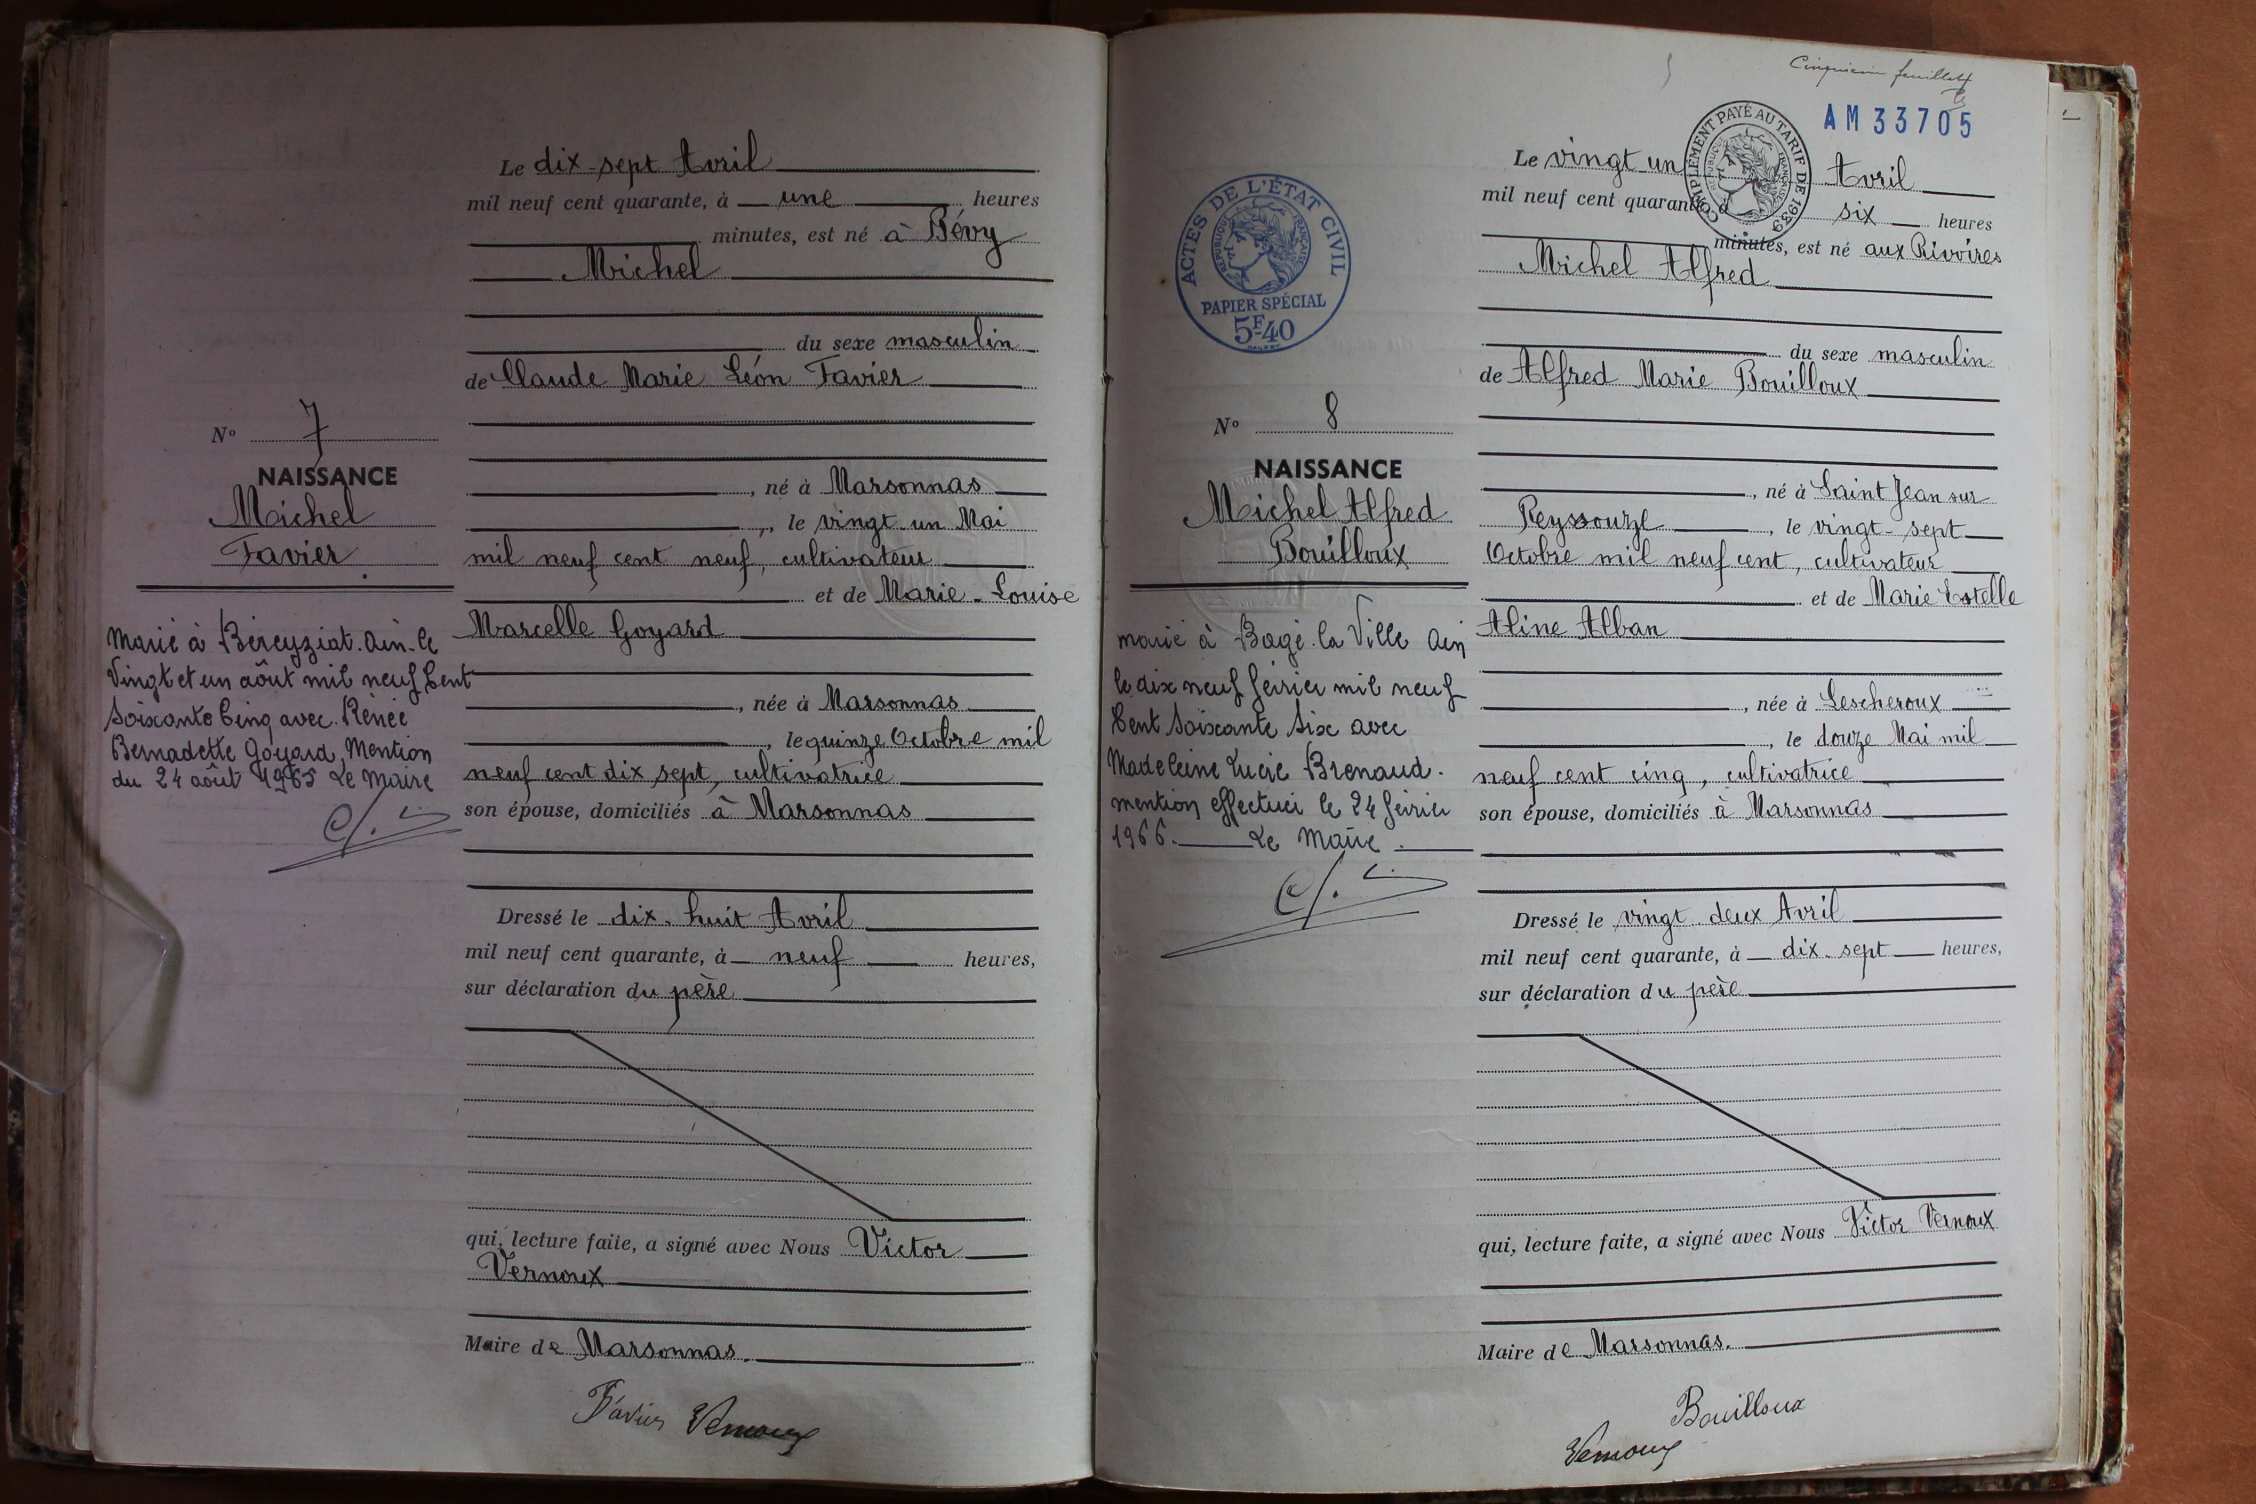 Le dix-sept Avril
mil neuf cent quarante, à une heures
minutes, est né à Bévy
Michel
du sexe masculin
de Claude Marie Léon Favier
N° 7
NAISSANCE
Michel
Favier
, né à Marsonnas
, le vingt un Mai
mil neuf cent neuf, cultivateur
et de Marie-Louise
Marcelle Goyard
, née à Marsonnas
, le quinze Octobre mil
neuf cent dix sept, cultivatrice
son épouse, domiciliés à Marsonnas
Marié à Béreyziat. Ain. le
Vingt et un août mil neuf Cent
Soixante Cinq avec Renée
Bernadette Goyard, Mention
du 24 août 1965 Le Maire
Dressé le dix-huit Avril
mil neuf cent quarante, à neuf heures,
sur déclaration du père
qui, lecture faite, a signé avec Nous Victor
Vernoux
Maire de Marsonnas.
Favier Vernoux
feuillet
AM33705
COMPLÉMENT PAYÉ AU TARIF DE 1939
RÉPUBLIQUE FRANÇAISE
ACTES DE L'ÉTAT CIVIL
RÉPUBLIQUE FRANÇAISE
PAPIER SPÉCIAL
5F40
Le vingt un Avril
mil neuf cent quarante, à six heures
minutes, est né aux Rivoires
Michel Alfred
du sexe masculin
de Alfred Marie Bouilloux
N° 8
NAISSANCE
Michel Alfred
Bouilloux
, né à Saint Jean sur
Reyssouze, le vingt-sept
Octobre mil neuf cent, cultivateur
et de Marie Estelle
Aline Alban
, née à Lescheroux
, le douze Mai mil
neuf cent cinq, cultivatrice
son épouse, domiciliés à Marsonnas
marié à Bagé-la Ville Ain
le dix neuf février mil neuf
Cent Soixante Six avec
Madeleine Lucie Brenaud.
mention effectuée le 24 février
1966. Le Maire.
Dressé le vingt deux Avril
mil neuf cent quarante, à dix-sept heures,
sur déclaration du père
qui, lecture faite, a signé avec Nous Victor Vernoux
Maire de Marsonnas.
Bouilloux
Vernoux